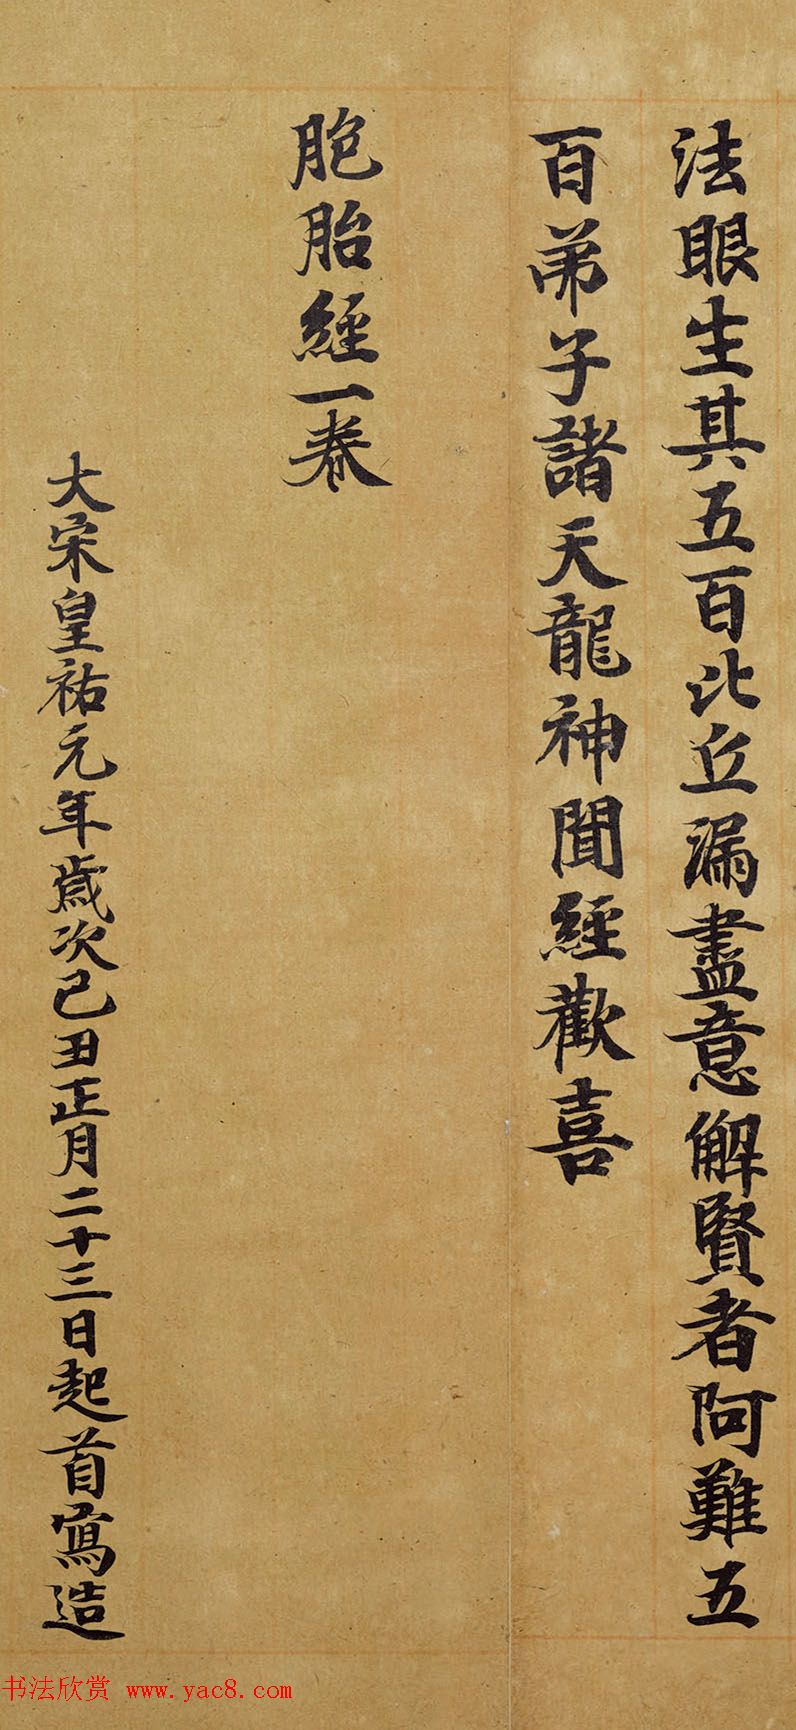 法眼生其五百比丘漏盡意解賢者阿難五
百弟子諸天龍神聞經歡喜
胞胎經一卷
大宋皇祐元年歲次己丑正月二十三日起首寫造
书法欣赏 www.yac8.com